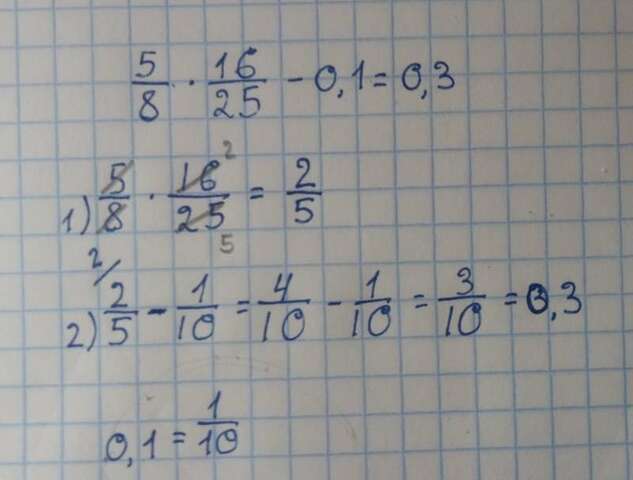 5/8 · 16/25 - 0,1 = 0,3
1) 5/8 · 16/25 = 2/5
2) 2/5 - 1/10 = 4/10 - 1/10 = 3/10 = 0,3
0,1 = 1/10